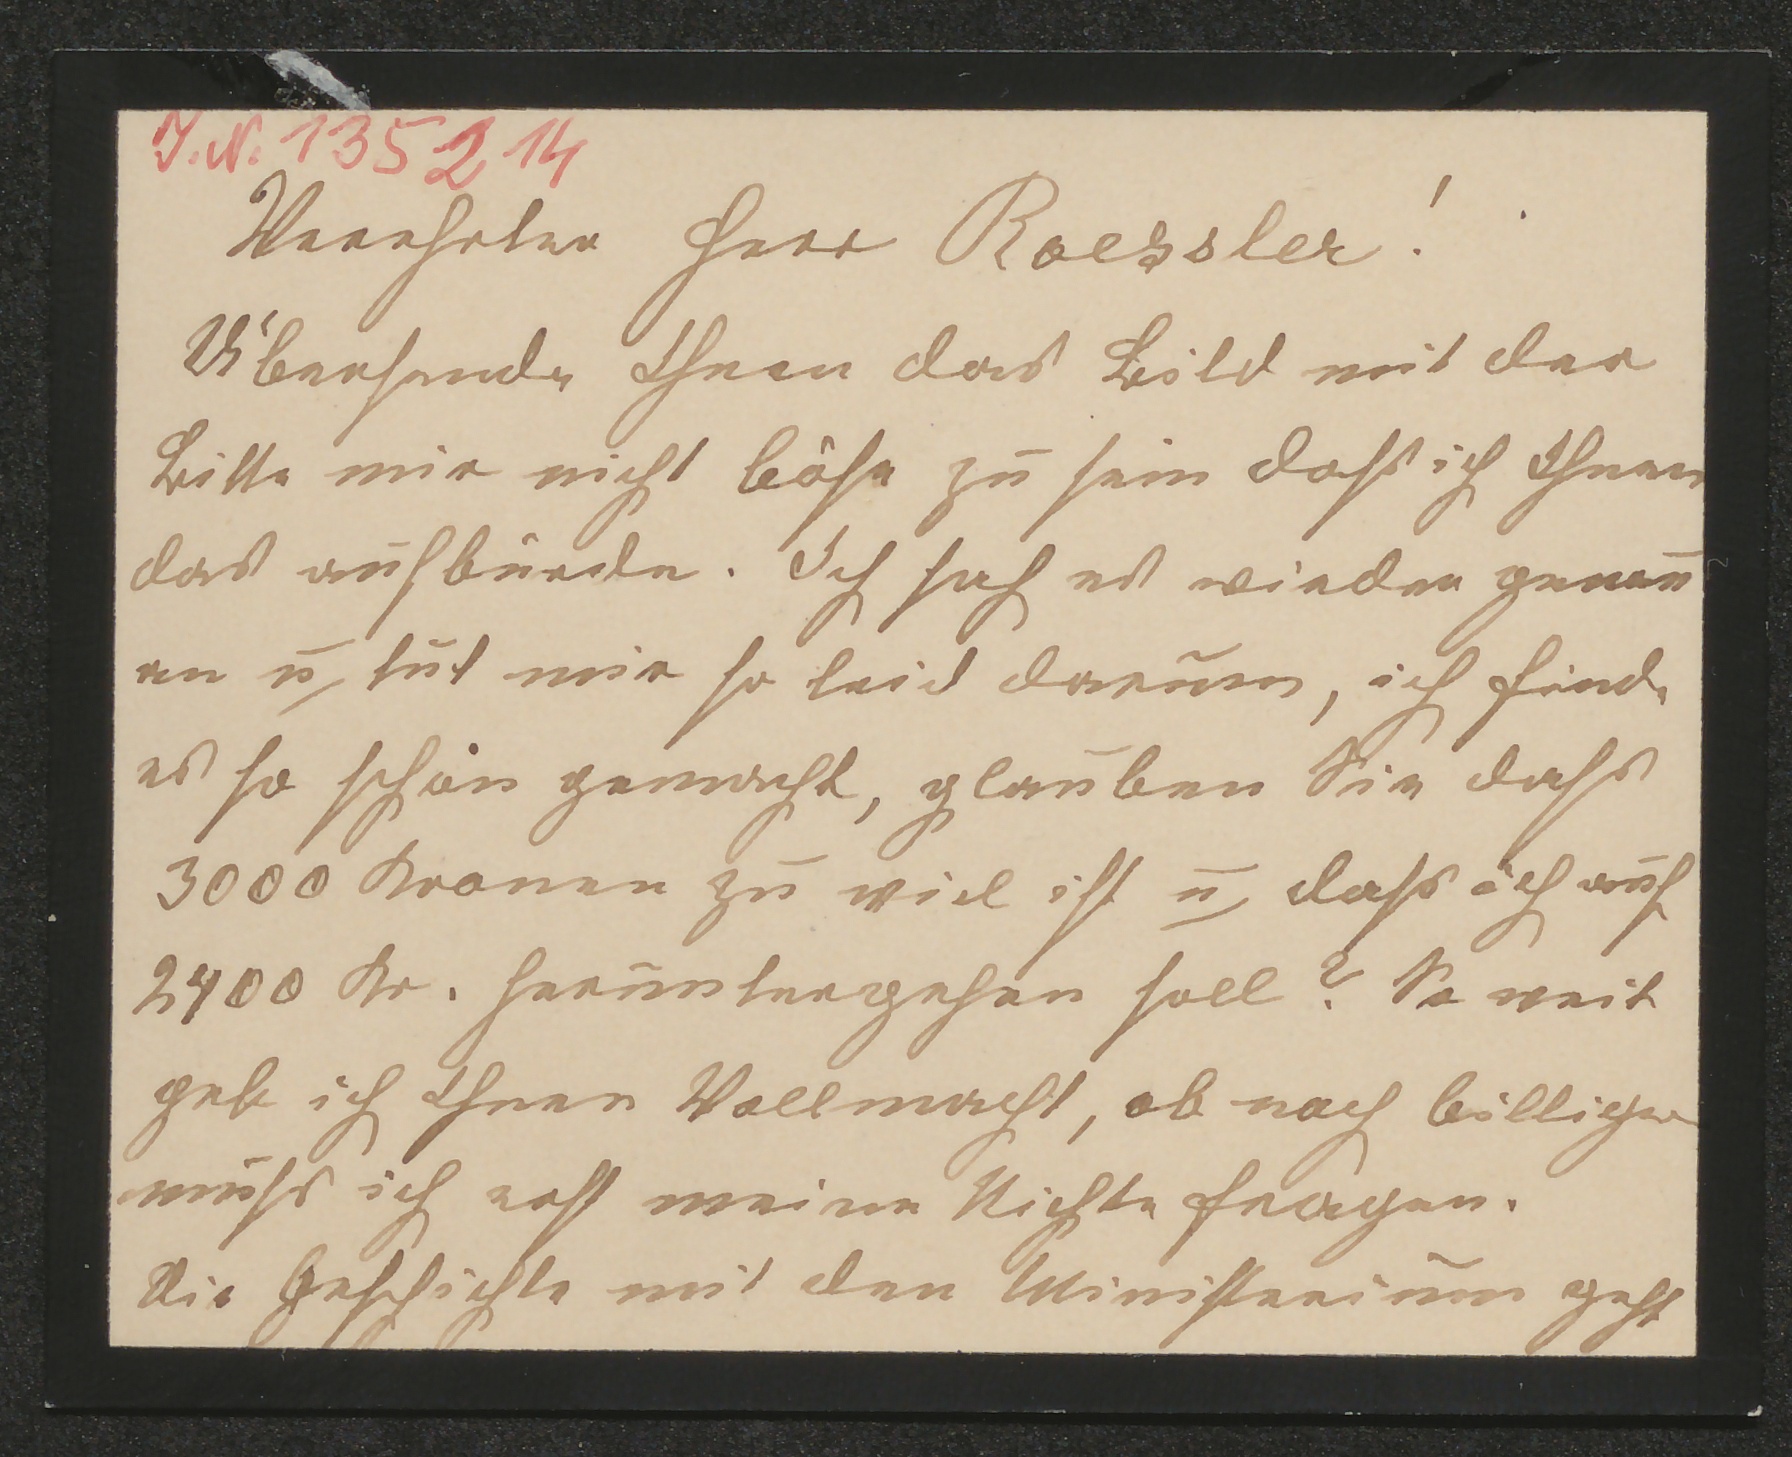 J.N. 135214
Verehrter Herr Roessler!
Übersende Ihnen das Bild mit der
Bitte mir nicht böse zu sein dass ich Ihnen
das aufbürde. Ich sah es wieder genau
an u, tut mir so leid darum, ich finde
es so schön gemacht, glauben Sie dass
3000 Kronen zu viel ist u, dass ich auf
2400 Kr. heruntergehen soll? So weit
geb ich Ihnen Vollmacht, ob noch billiger
muss ich erst meine Nichte fragen.
Die Geschichte mit den Ministerium geht